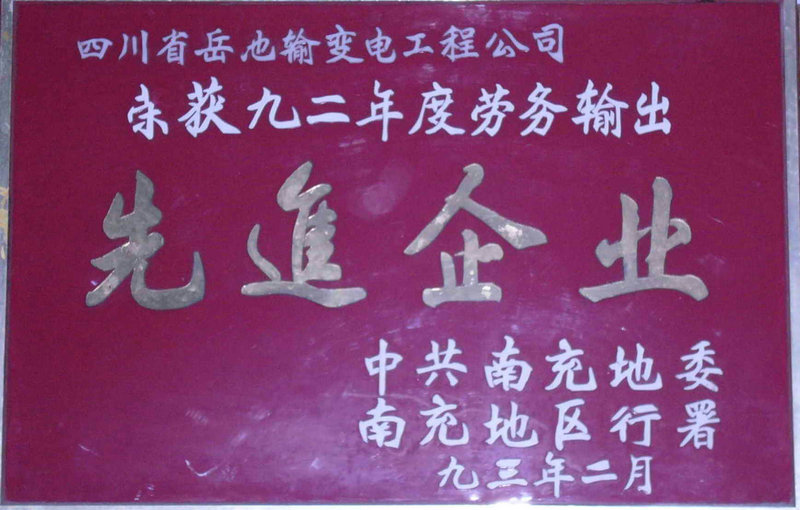 四川省岳池输变电工程公司
荣获九二年度劳务输出
先進企业
中共南充地委
南充地区行署
九三年二月